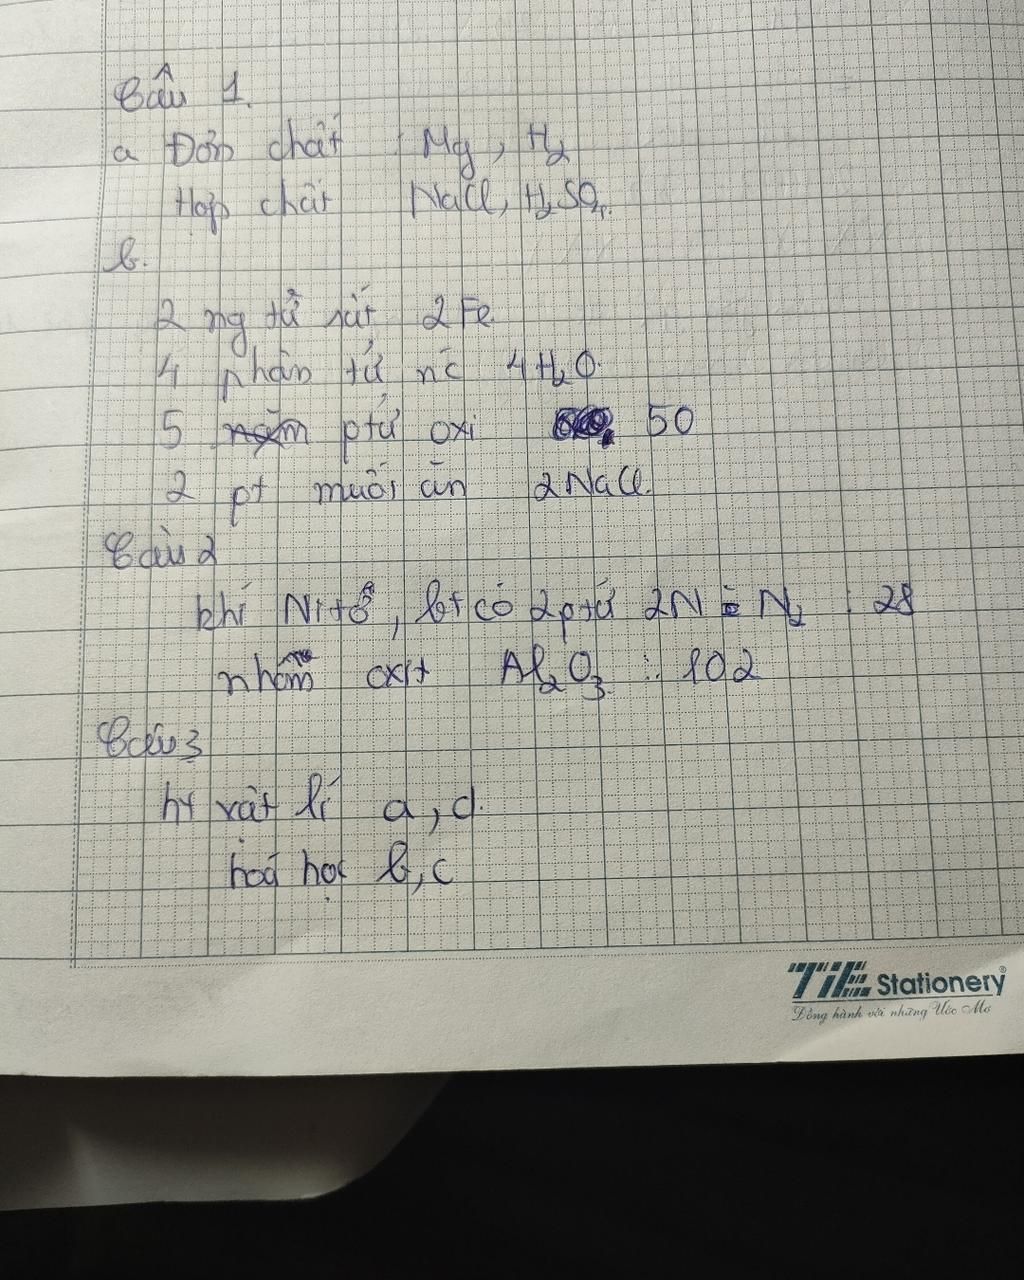 Câu 1.
a Đơn chất : Mg, H₂
Hợp chất NaCl, H₂SO₄.
b.
2 ng tử sắt 2Fe
4 phân tử nc 4H₂O.
5 ptử oxi 5O
2 pt muối ăn 2NaCl.
Câu 2
khí Nitơ, bt có 2ptử 2N = N₂ : 28
nhôm oxit Al₂O₃ : 102
Câu 3
ht vật lí a, d.
hoá học b, c
TiE Stationery®
Đồng hành với những Ước Mơ